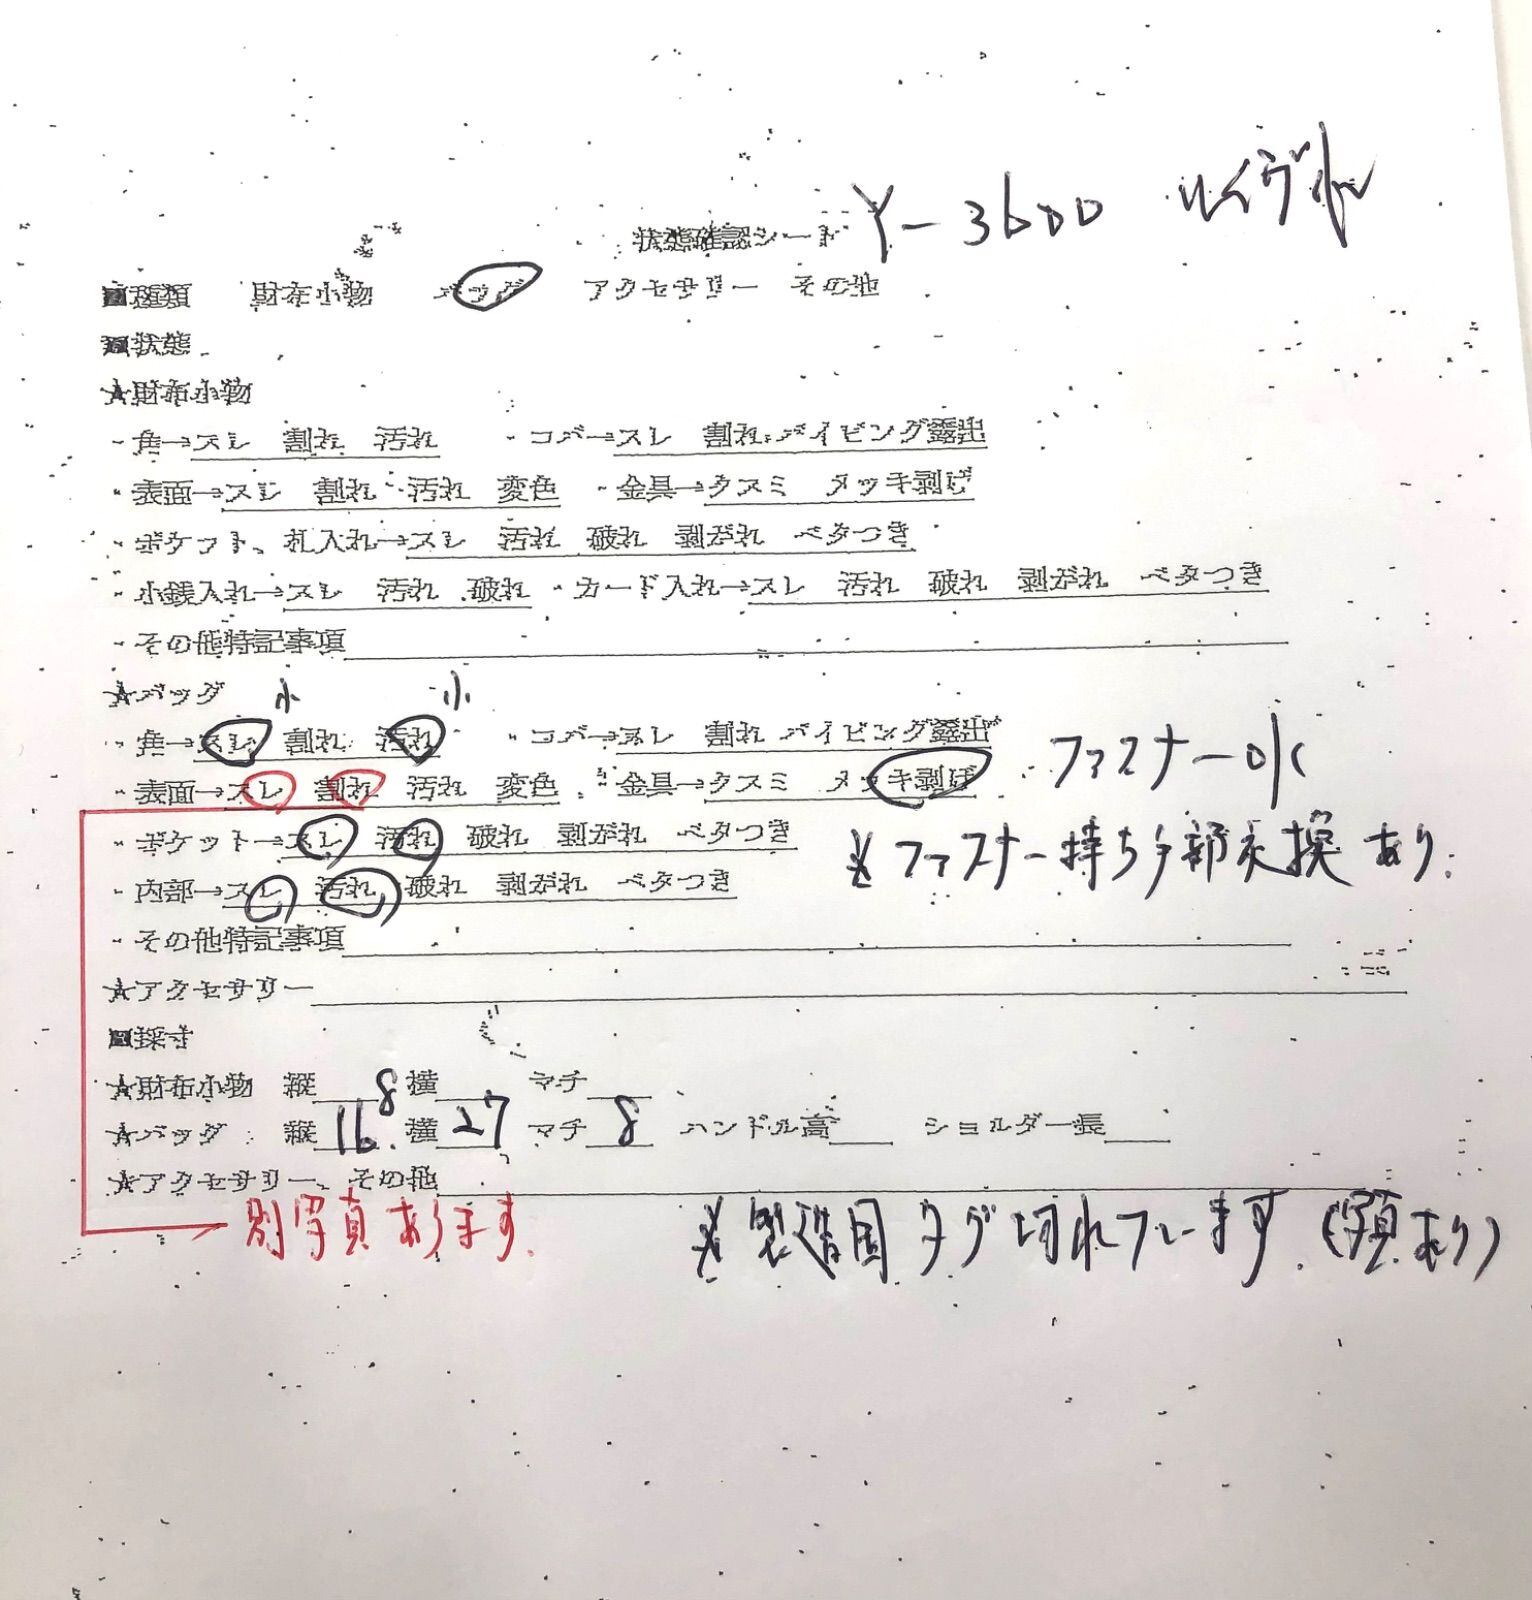 Y-3600 ルイヴィ
状態確認シート
■種類 財布小物 バッグ アクセサリー その他
■状態
★財布小物
・角→スレ 割れ 汚れ ・コバ→スレ 割れ パイピング露出
・表面→スレ 割れ 汚れ 変色 ・金具→クスミ メッキ剥げ
・ポケット、札入れ→スレ 汚れ 破れ 剥がれ ベタつき
・小銭入れ→スレ 汚れ 破れ ・カード入れ→スレ 汚れ 破れ 剥がれ ベタつき
・その他特記事項
★バッグ 小 小
・角→スレ 割れ 汚れ ・コバ→スレ 割れ パイピング露出
ファスナーok
・表面→スレ 割れ 汚れ 変色 ・金具→クスミ メッキ剥げ
・ポケット→スレ 汚れ 破れ 剥がれ ベタつき
※ファスナー持ち手部交換あり.
・内部→スレ 汚れ 破れ 剥がれ ベタつき
・その他特記事項
★アクセサリー
■採寸
★財布小物 縦 8 横 マチ
★バッグ 縦 16 横 27 マチ 8 ハンドル高 ショルダー長
★アクセサリー、その他
別写真あります.
※製造国タグ切れています.(写真あり)